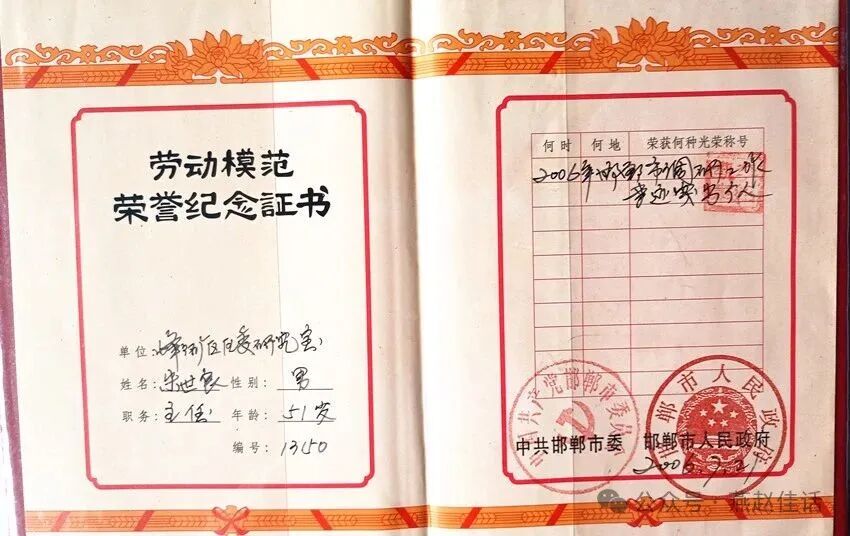 劳动模范
荣誉纪念証书
单位：峰峰矿区区委研究室
姓名 宋世良 性别：男
职务：主任 年龄：51岁
编号：1350
何时 何地 荣获何种光荣称号
2006年邯郸市调研工作
先进个人
中国共产党邯郸市委员会
邯郸市人民政府
中共邯郸市委 邯郸市人民政府
2006.
公众号·燕赵佳话